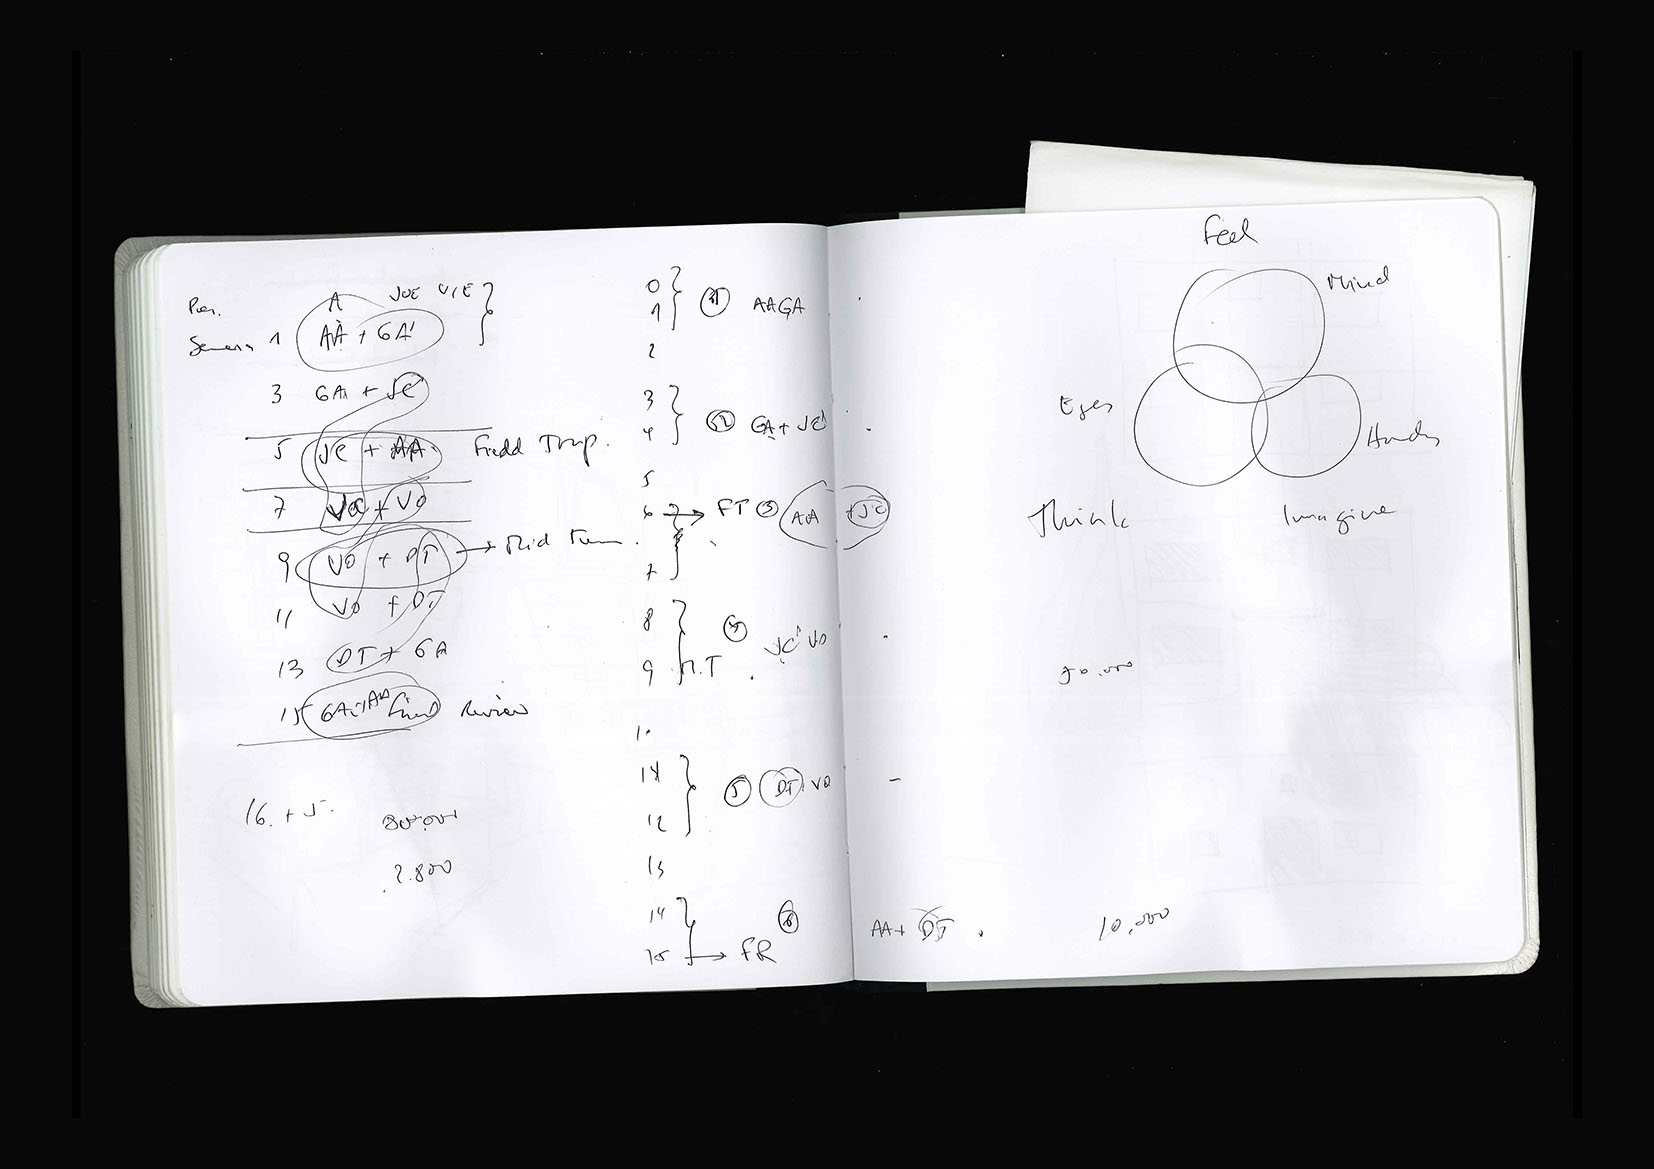 A JUE VIE
Semana 1 AA + GA
3 GA + JC
5 JC + AA Field Trip.
7 + VO
9 VO + DT → Mid Term.
11 VO + DT
13 DT + GA
15 GA + AA Final Review
16. + 5.
2.800
0
1 1 AAGA
2
3
4 2 GA + JC
5
6 → FT 3 AA + JC
7
8
9 M.T 4 JC VO
10
11
12 5 DT. VO
13
14 6
15 → FR
AA + DT.
Feel
Mind
Eyes
Hands
Think
Imagine
10,000